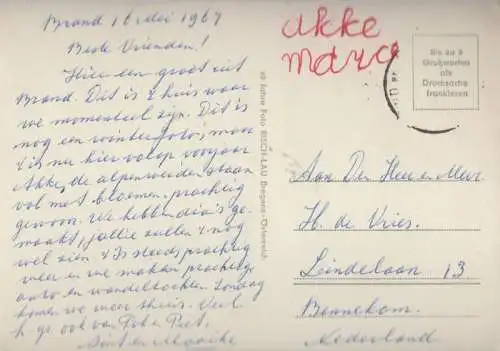 Brand 16 Mei 1967
Beste Vrienden!
Hier een groet uit
Brand. Dit is 't huis waar
we momenteel zijn. Dit is
nog een winterfoto, maar
't is nu hier volop voorjaar
Akke, de alpenweiden staan
vol met bloemen, prachtig
gewoon. We hebben dia's ge-
maakt, jullie zullen 't nog
wel zien. 't Is steeds prachtig
weer en we maken prachtige
auto en wandeltochten. Zondag
komen we weer thuis. Veel
gr. ook van Piet.
en Maaike
akke
60 Jahre Foto RISCH-LAU Bregenz-Österreich
Bis zu 5
Grußworten
als
Drucksache
frankieren
Aan Den Heer en Mevr
H. de Vries.
Lindelaan 13
Bennekom.
Nederland